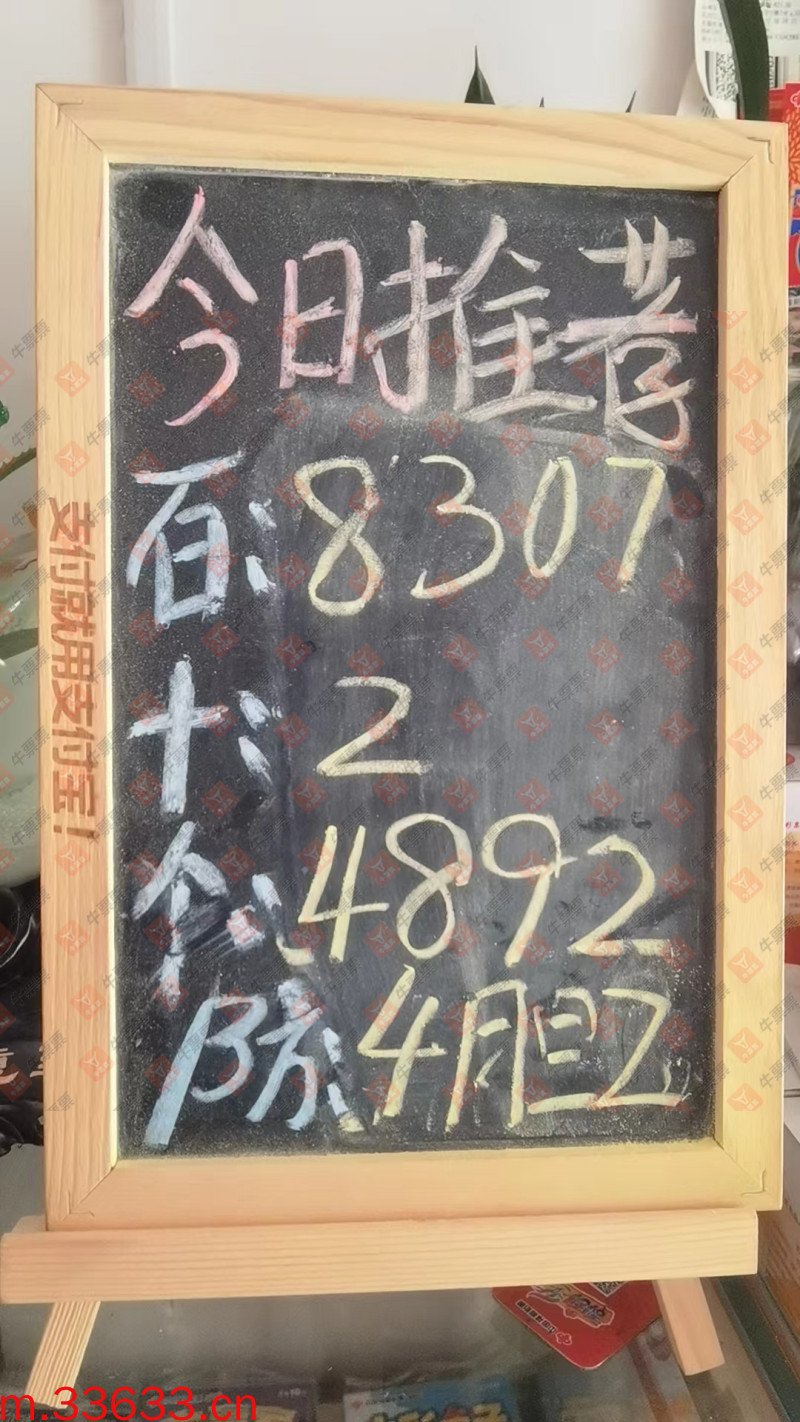 今日推荐
百:8307
十:2
个:4892
防:4胆2
支付就用支付宝!
牛票票
m.33633.cn